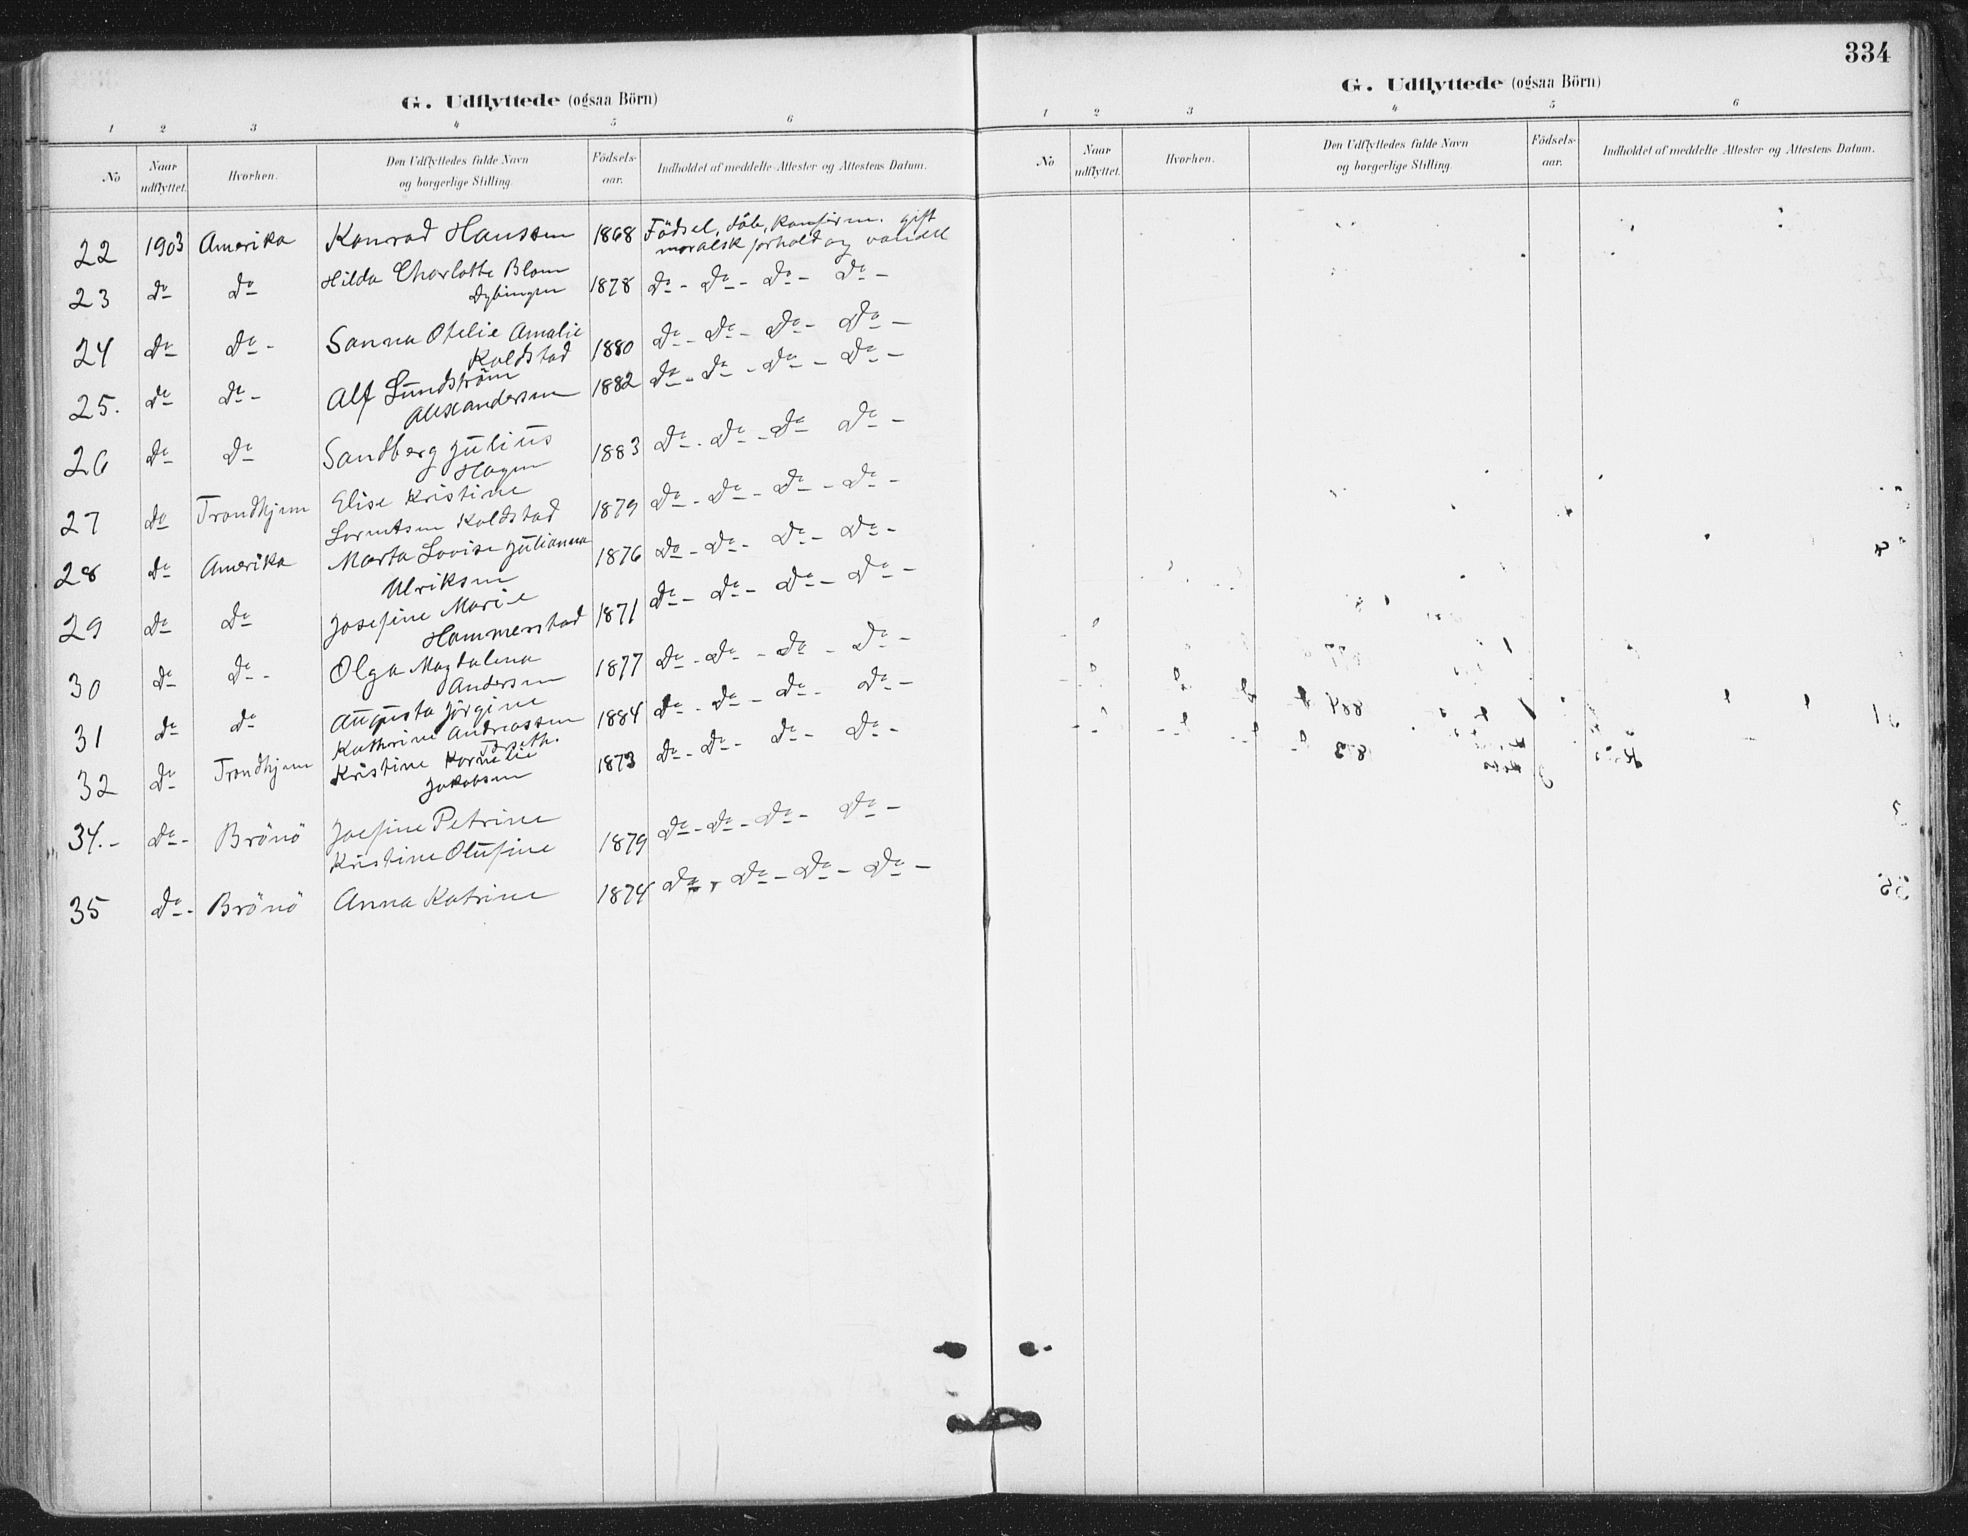 334
G. Udflyttede (ogsaa Börn)
1 2 3 4 5 6
No Naar udflyttet. Hvorhen. Den Udflyttedes fulde Navn og borgerlige Stilling. Födsels-aar. Indholdet af meddelte Attester og Attestens Datum.
22 1903 Amerika Konrad Hanssen 1868 Födsel, dåb, konfirm. gift
moralsk forhold og vandel
23 do do Hilda Charlotte Blom
Dybingen 1878 do - do - do - do -
24 do do - Sanna Otelie Amalie
Koldstad 1880 do - do - do - do -
25. do do - Alf Lundström
Alexandersen 1882 do - do - do - do -
26 do do Sandberg Julius
Hagen 1883 do - do - do do -
27 do Trondhjem Elise Kristine
Lorentsen Koldstad 1879 do - do - do - do -
28 do Amerika Marta Lovise Julianna
Ulriksen 1876 do - do - do - do -
29 do do Josefine Marie
Hammerstad 1871 do - do - do - do -
30 do do - Olga Magdalena
Andersen 1877 do - do - do - do -
31 do do Augusta Jörgine
Kathrine Andreassen 1884 do - do - do - do -
32 do Trondhjem Kristine Kornelie
Jakobsen 1873 do - do - do - do -
34. - do - Brönö Josefine Petrine
Kristine Olufine 1879 do - do - do - do -
35 do - Brönö Anna Katrine 1874 do - do - do - do -
G. Udflyttede (ogsaa Börn)
1 2 3 4 5 6
No Naar udflyttet. Hvorhen. Den Udflyttedes fulde Navn og borgerlige Stilling. Födsels-aar. Indholdet af meddelte Attester og Attestens Datum.